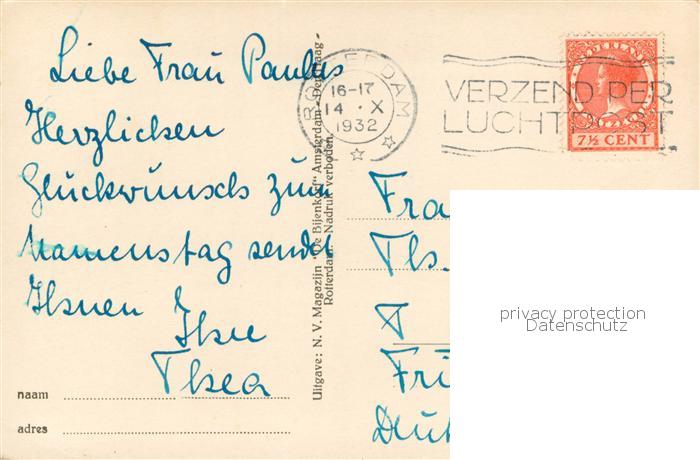 Liebe Frau Paulus
Herzlichen
Glückwunsch zum
Namenstag sendet
Ihnen Ihre
Thea
naam
adres
Uitgave: N. V. Magazijn "De Bijenkorf" Amsterdam - Den Haag -
Rotterdam. Nadruk verboden.
ROTTERDAM
16-17
14 · X
1932
VERZEND PER
LUCHTPOST
NEDERLAND
7½ CENT
Fra
Ths.
Deut
privacy protection
Datenschutz